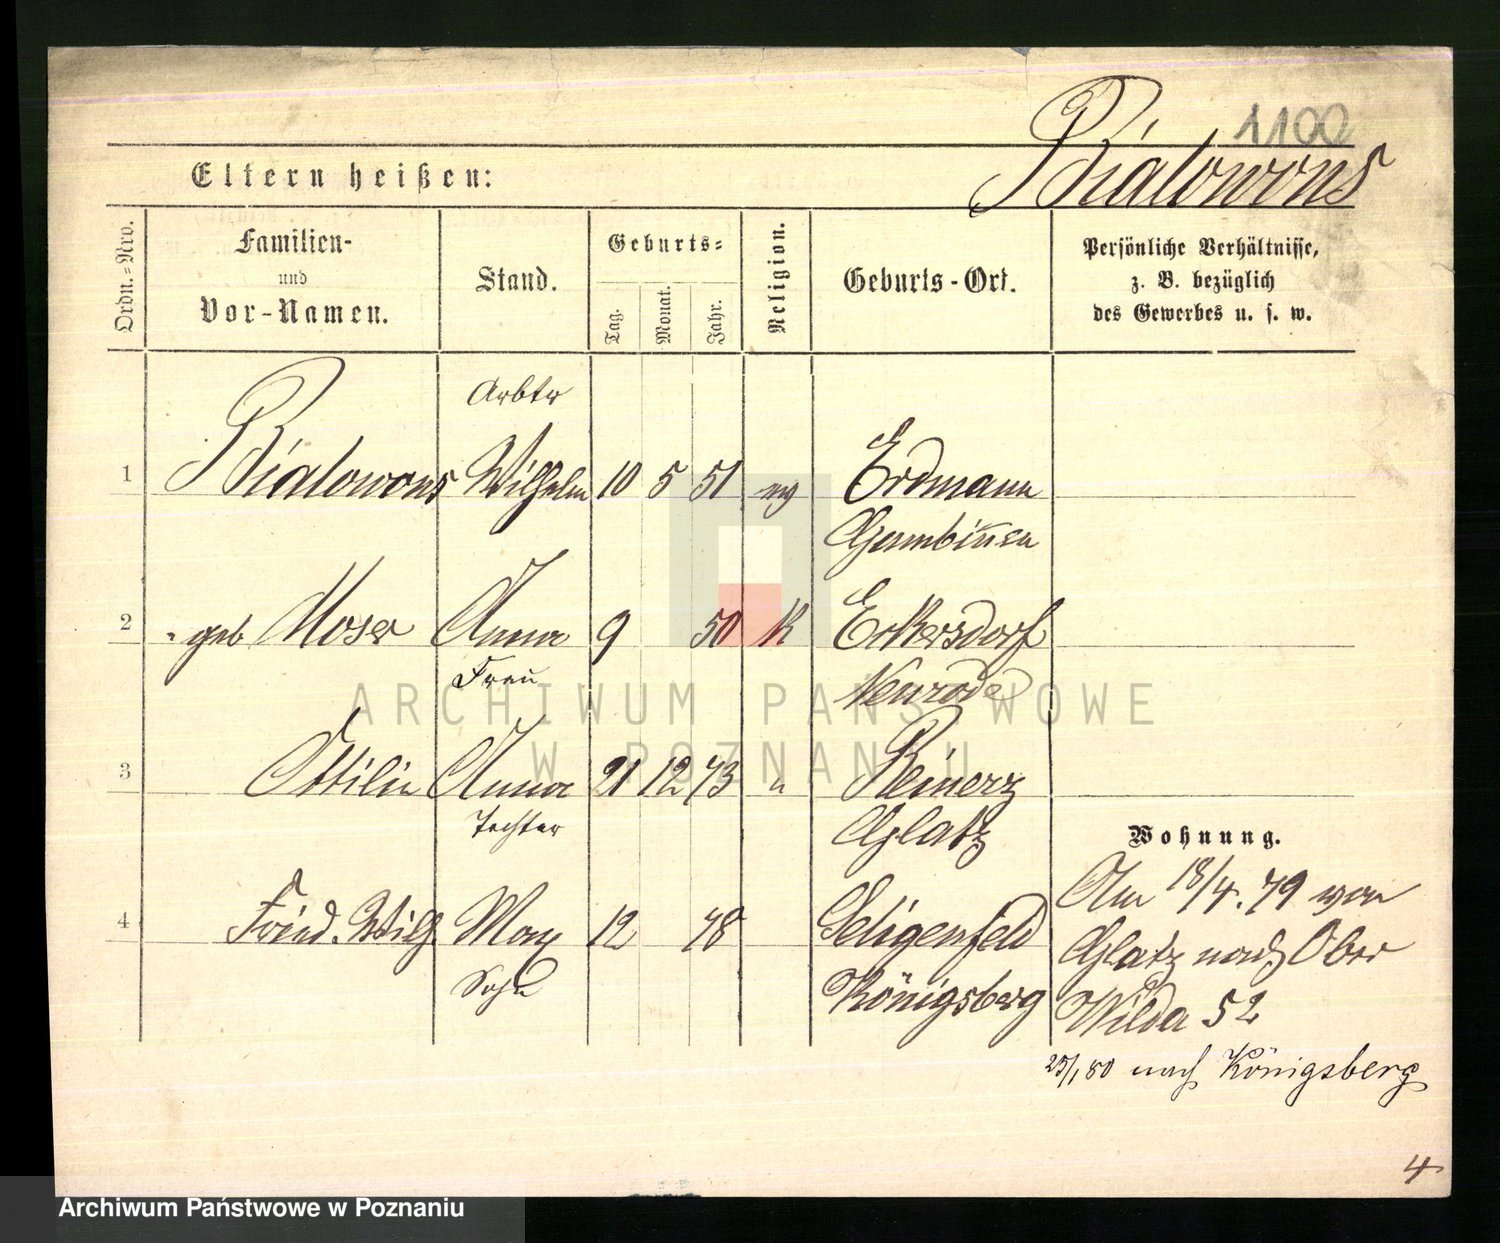 1100
Bialowons
Eltern heißen:
Ordn.-Nro.
Familien-
und
Vor-Namen.
Stand.
Geburts-
Tag.
Monat.
Jahr.
Religion.
Geburts-Ort.
Persönliche Verhältnisse,
z. B. bezüglich
des Gewerbes u. s. w.
Arbtr
1 Bialowons Wilhelm 10 5 51 ev Erdmann
Gambinnen
2 geb Moser Anna 9 50 K Eckersdorf
Frau Neurode
3 Ottilie Anna 21 12 73 " Reinerz
Tochter Glatz
Wohnung.
4 Fried. Wilh. Max 12 78 Seligenfeld
Sohn Königsberg
Am 18/4. 79 von
Glatz nach Ober
Wilda 52
25/1 80 nach Königsberg
4
ARCHIWUM PAŃSTWOWE
W POZNANIU
Archiwum Państwowe w Poznaniu